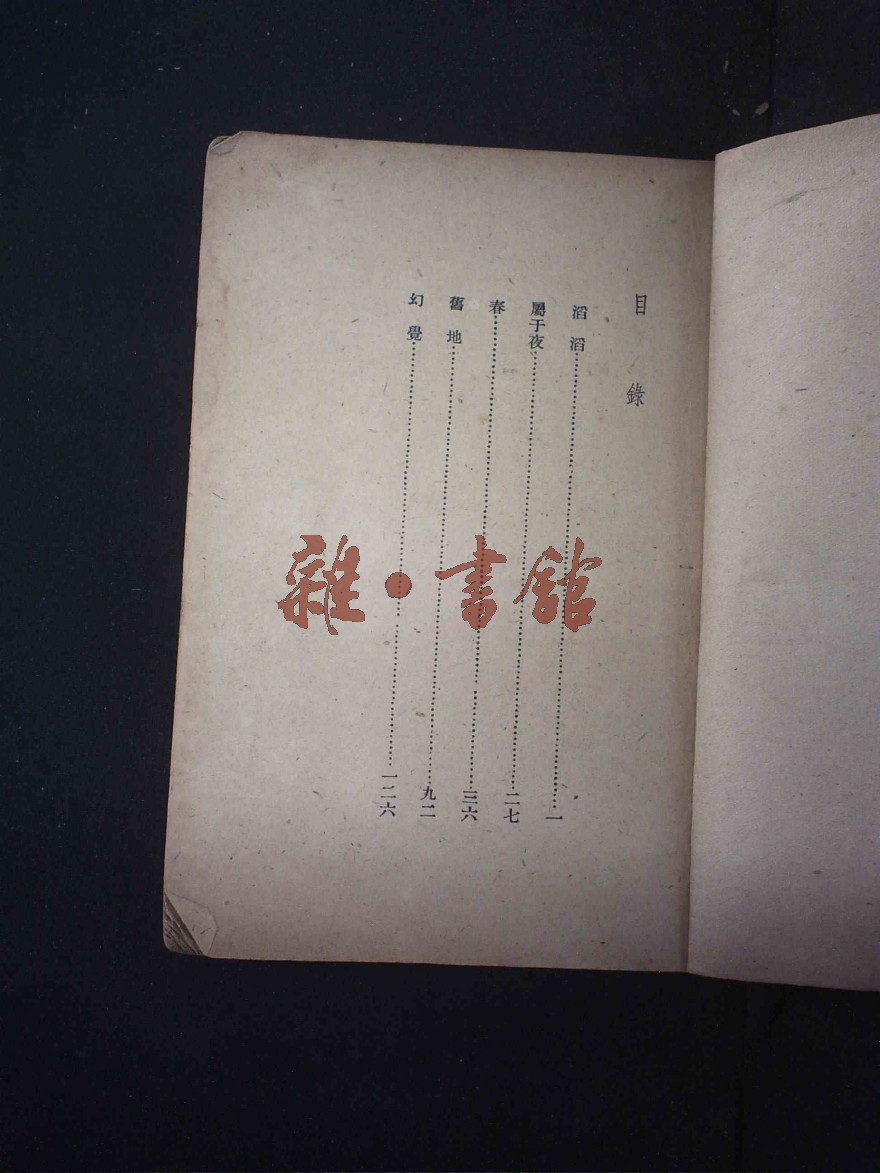 目錄
滔滔……一
屬于夜……二七
春……三六
舊地……九二
幻覺……一二六
雜·書館